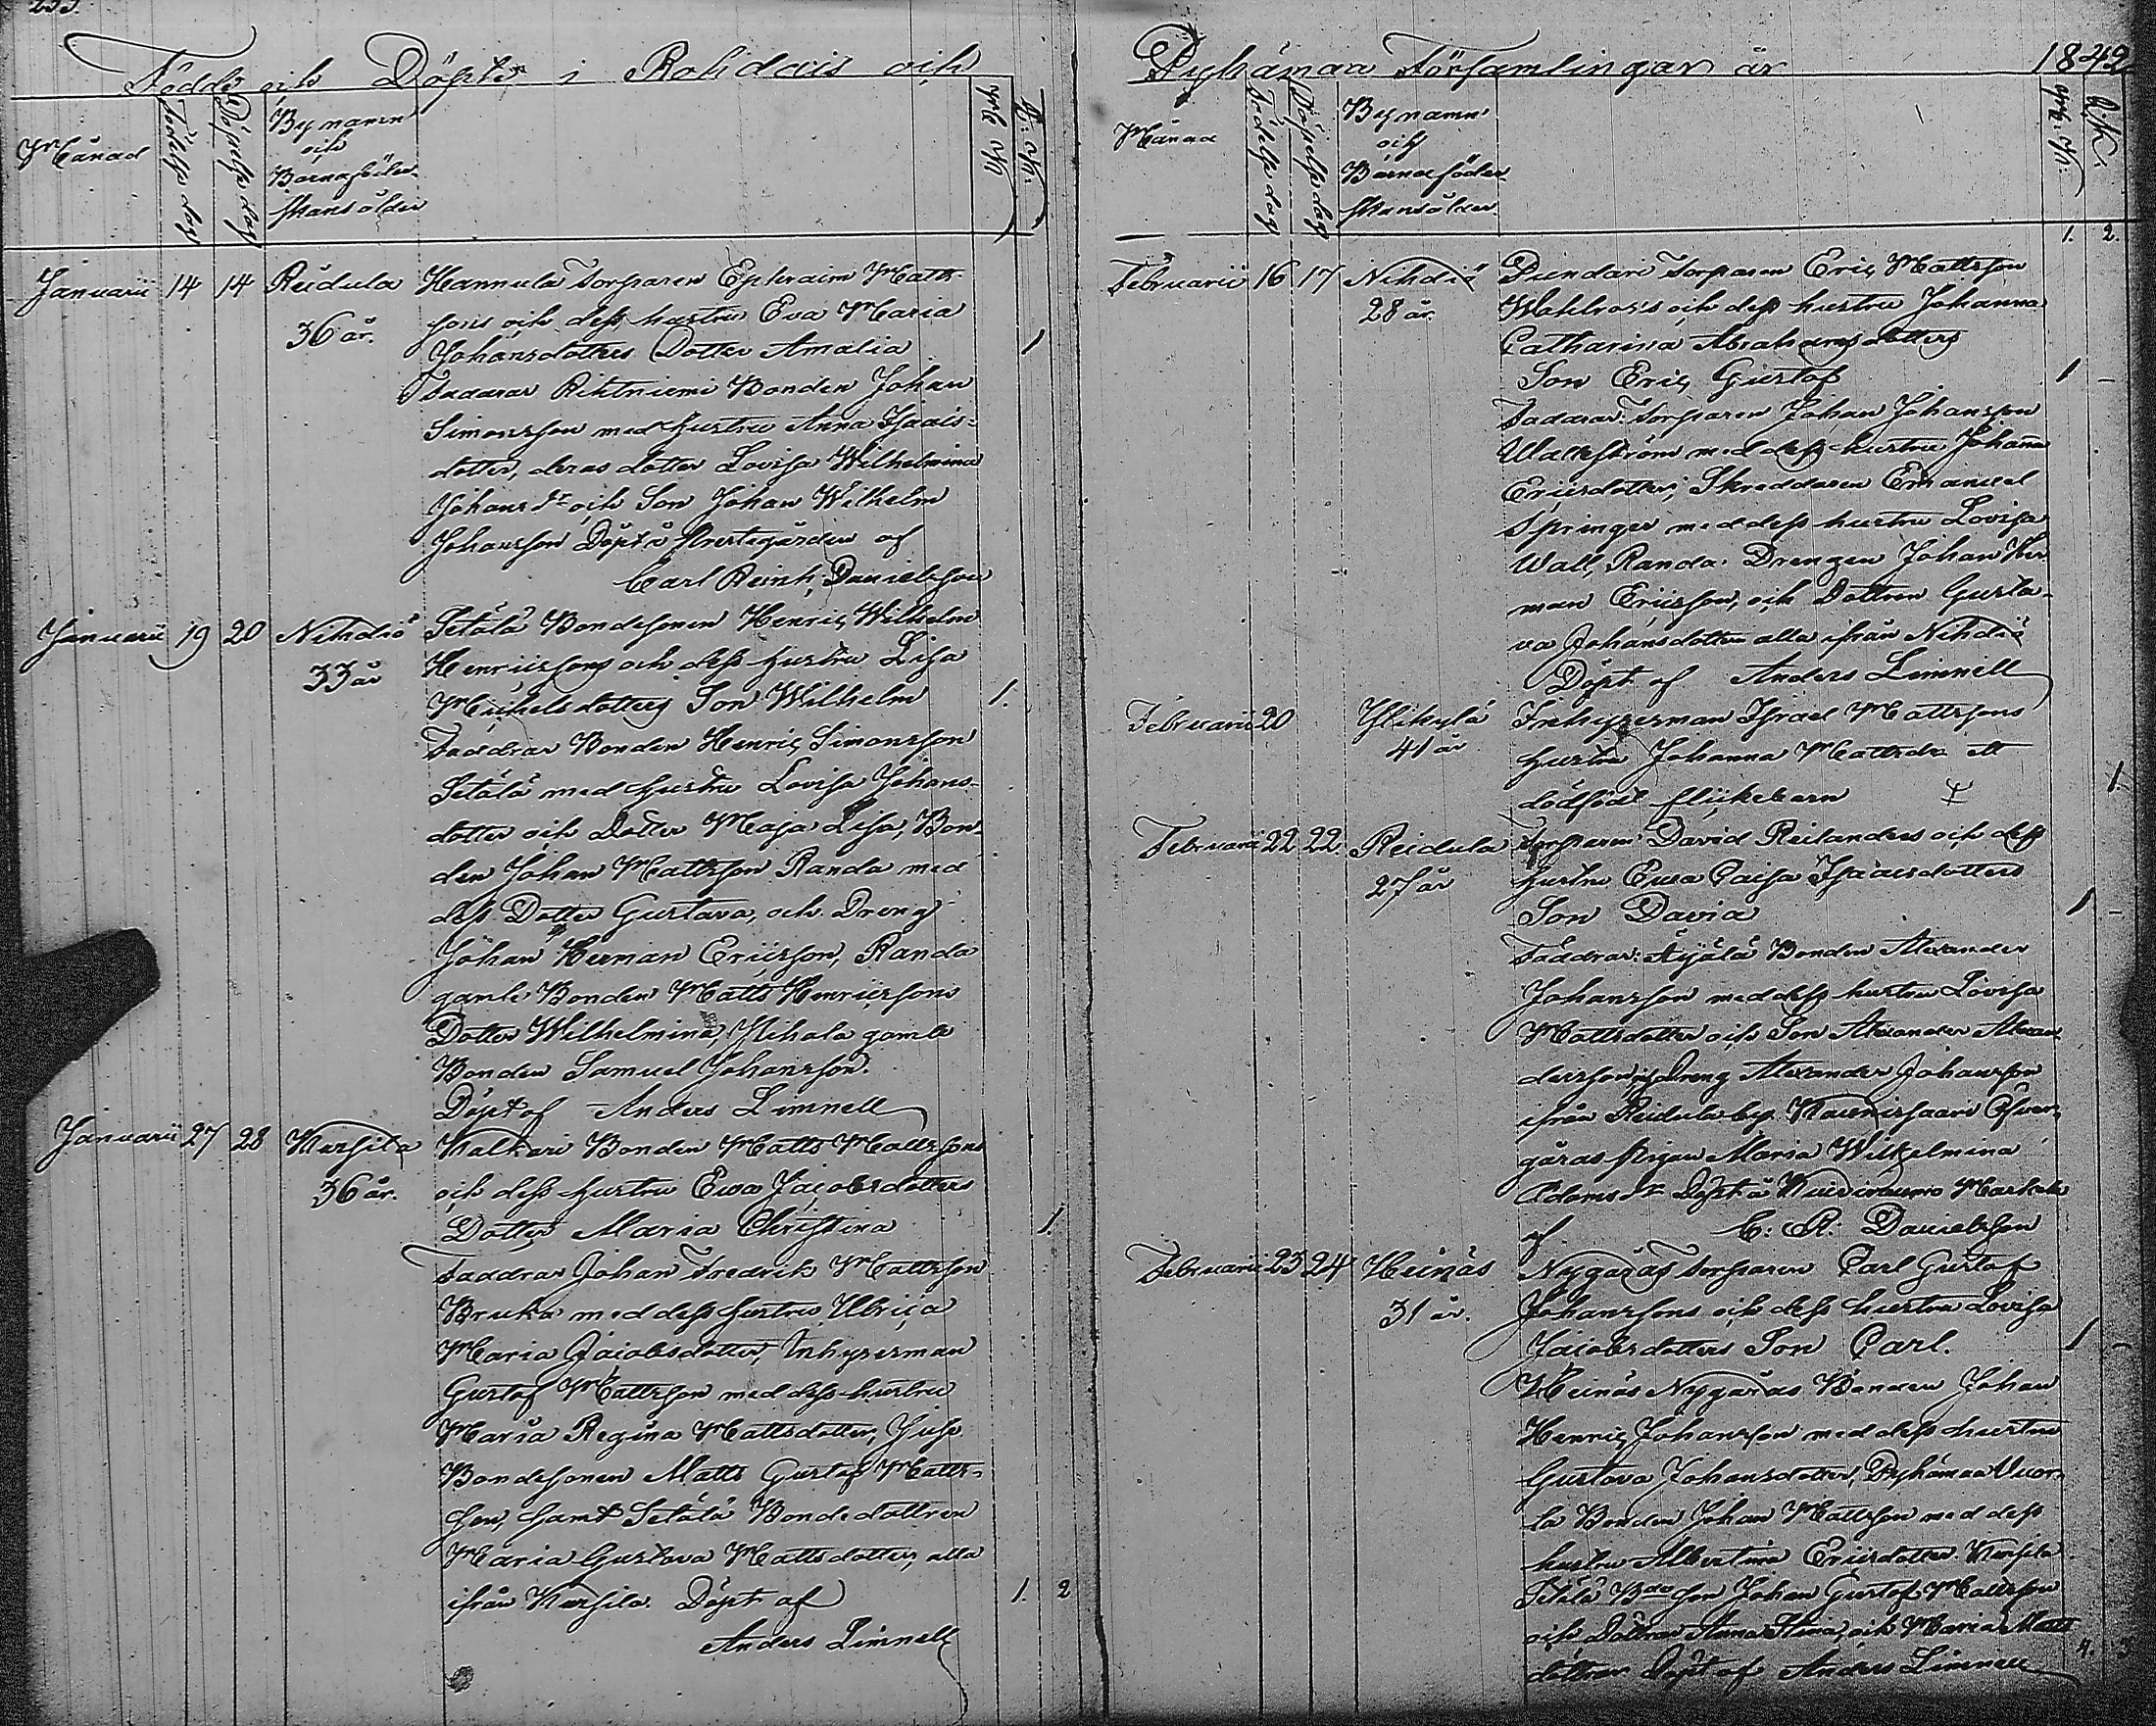 Födde och Döpte i Rohdais och
Månad
Födelse dag
Döpelse dag
Bynamn
och
Barnaföder-
skans ålder
M: K:
Q: K:
Januarii 14 14 Reidula Hannula Torparen Ephraim Matts-
36 år. sons och dess hustru Eva Maria
Johansdotters Dotter Amalia 1
Faddrar Rihtniemi Bonden Johan
Simonsson med hustru Anna Isaacs-
dotter, deras dotter Lovisa Wilhelmina
Johansdr och Son Johan Wilhelm
Johansson Döpt å Prestegården af
Carl Reinh: Danielsson
Januarii 19 20 Nihdiö Setälä Bondesonen Henric Wilhelm
33 år Henricssons och dess hustru Lisa
Michelsdotters Son Wilhelm 1.
Faddrar Bonden Henric Simonsson
Setälä med hustru Lovisa Johans-
dotter och Dotter Maja Lisa, Bon-
den Johan Mattsson Randa med
dess Dotter Gustava, och Dreng
Johan Herman Ericsson, Randa
gamle Bonden Matts Henricssons
Dotter Wilhelmina, gamle
Bonden Samuel Johansson.
Döpt af Anders Limnell
Januarii 27 28 Kursila Kalkari Bonden Matts Mattssons
36 år. och dess hustru Ewa Jacobsdotters
Dotter Maria Christina 1.
Faddrar Johan Fredrik Mattsson
Bruka med dess hustru Ulrica
Maria Jacobsdotter, Inhysesman
Gustaf Mattsson med dess hustru
Maria Regina Mattsdotter,
Bondesonen Matts Gustaf Matts-
son, samt Setälä Bondedottren
Maria Gustava Mattsdotter, alla
ifrån Kursila. Döpt af 1. 2
Anders Limnell
Pyhämaa Församlingar år 1842
Månad
Födelse dag
Döpelse dag
Bynamn
och
Barnaföder-
skans ålder
M: K:
Q: K:
1. 2.
Februarii 16 17 Nihdiö Torparen Eric Mattsson
28 år. Wahlroos's och dess hustru Johanna
Catharina Abrahamsdotters
Son Eric Gustaf 1 -
Faddrar: Torparen Johan Johansson
Wallström med dess hustru Johanna
Ericsdotter, Skreddaren Emanuel
Springer med dess hustru Lovisa
Wall, Randa Drengen Johan Her-
man Ericsson, och Dottren Gusta-
va Johansdotter alla ifrån Nihdiö
Döpt af Anders Limnell
Februarii 20 Ylikylä Inhysesman Israel Mattssons
41 år hustru Johanna Mattsdr ett
dödfödt flickebarn 1.
Februarii 22 22. Reidula Torparen David Reilanders och dess
27 år hustru Ewa Caisa Isaacsdotters
Son David 1 -
Faddrar: Äijälä Bonden Alexander
Johansson med dess hustru Lovisa
Mattsdotter och Son Alexander Alexan-
dersson, Dreng Alexander Johansson
ifrån Reidula by
gäras Pigan Maria Wilhelmina
Adamsdr Döpt å
af C: R: Danielsson
Februarii 23 24 Heinäs Nygåras Torparen Carl Gustaf
31 år. Johanssons och dess hustru Lovisa
Jacobsdotters Son Carl. 1 -
Heinäs Nygåras Bonden Johan
Henric Johansson med dess hustru
Gustava Johansdotter, Pyhämaa Vuor-
la Bonden Johan Mattsson med dess
hustru Albertina Ericsdotter. Kursila
Setälä Bde Son Johan Gustaf Mattsson
och Döttrar Anna Stina, och Maria Matts
döttrar Döpt af Anders Limnell 4. 3